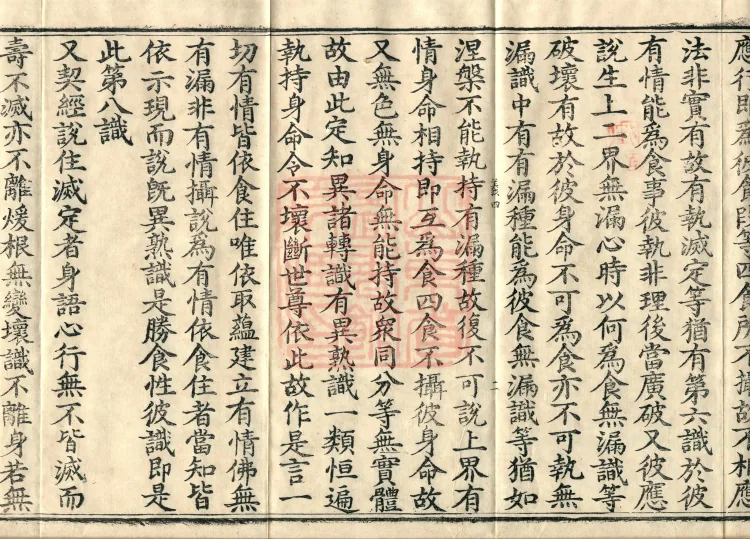 應行即爲彼食段等四食所不攝故不相應
法非實有故有執滅定等猶有第六識於彼
有情能爲食事彼執非理後當廣破又彼應
說生上二界無漏心時以何爲食無漏識等
破壞有故於彼身命不可爲食亦不可執無
漏識中有有漏種能爲彼食無漏識等猶如
二
涅槃不能執持有漏種故復不可說上界有
情身命相持即互爲食四食不攝彼身命故
又無色無身命無能持故衆同分等無實體
故由此定知異諸轉識有異熟識一類恒遍
執持身命令不壞斷世尊依此故作是言一
切有情皆依食住唯依取蘊建立有情佛無
有漏非有情攝說爲有情依食住者當知皆
依示現而說旣異熟識是勝食性彼識即是
此第八識
又契經說住滅定者身語心行無不皆滅而
壽不滅亦不離煖根無變壞識不離身若無